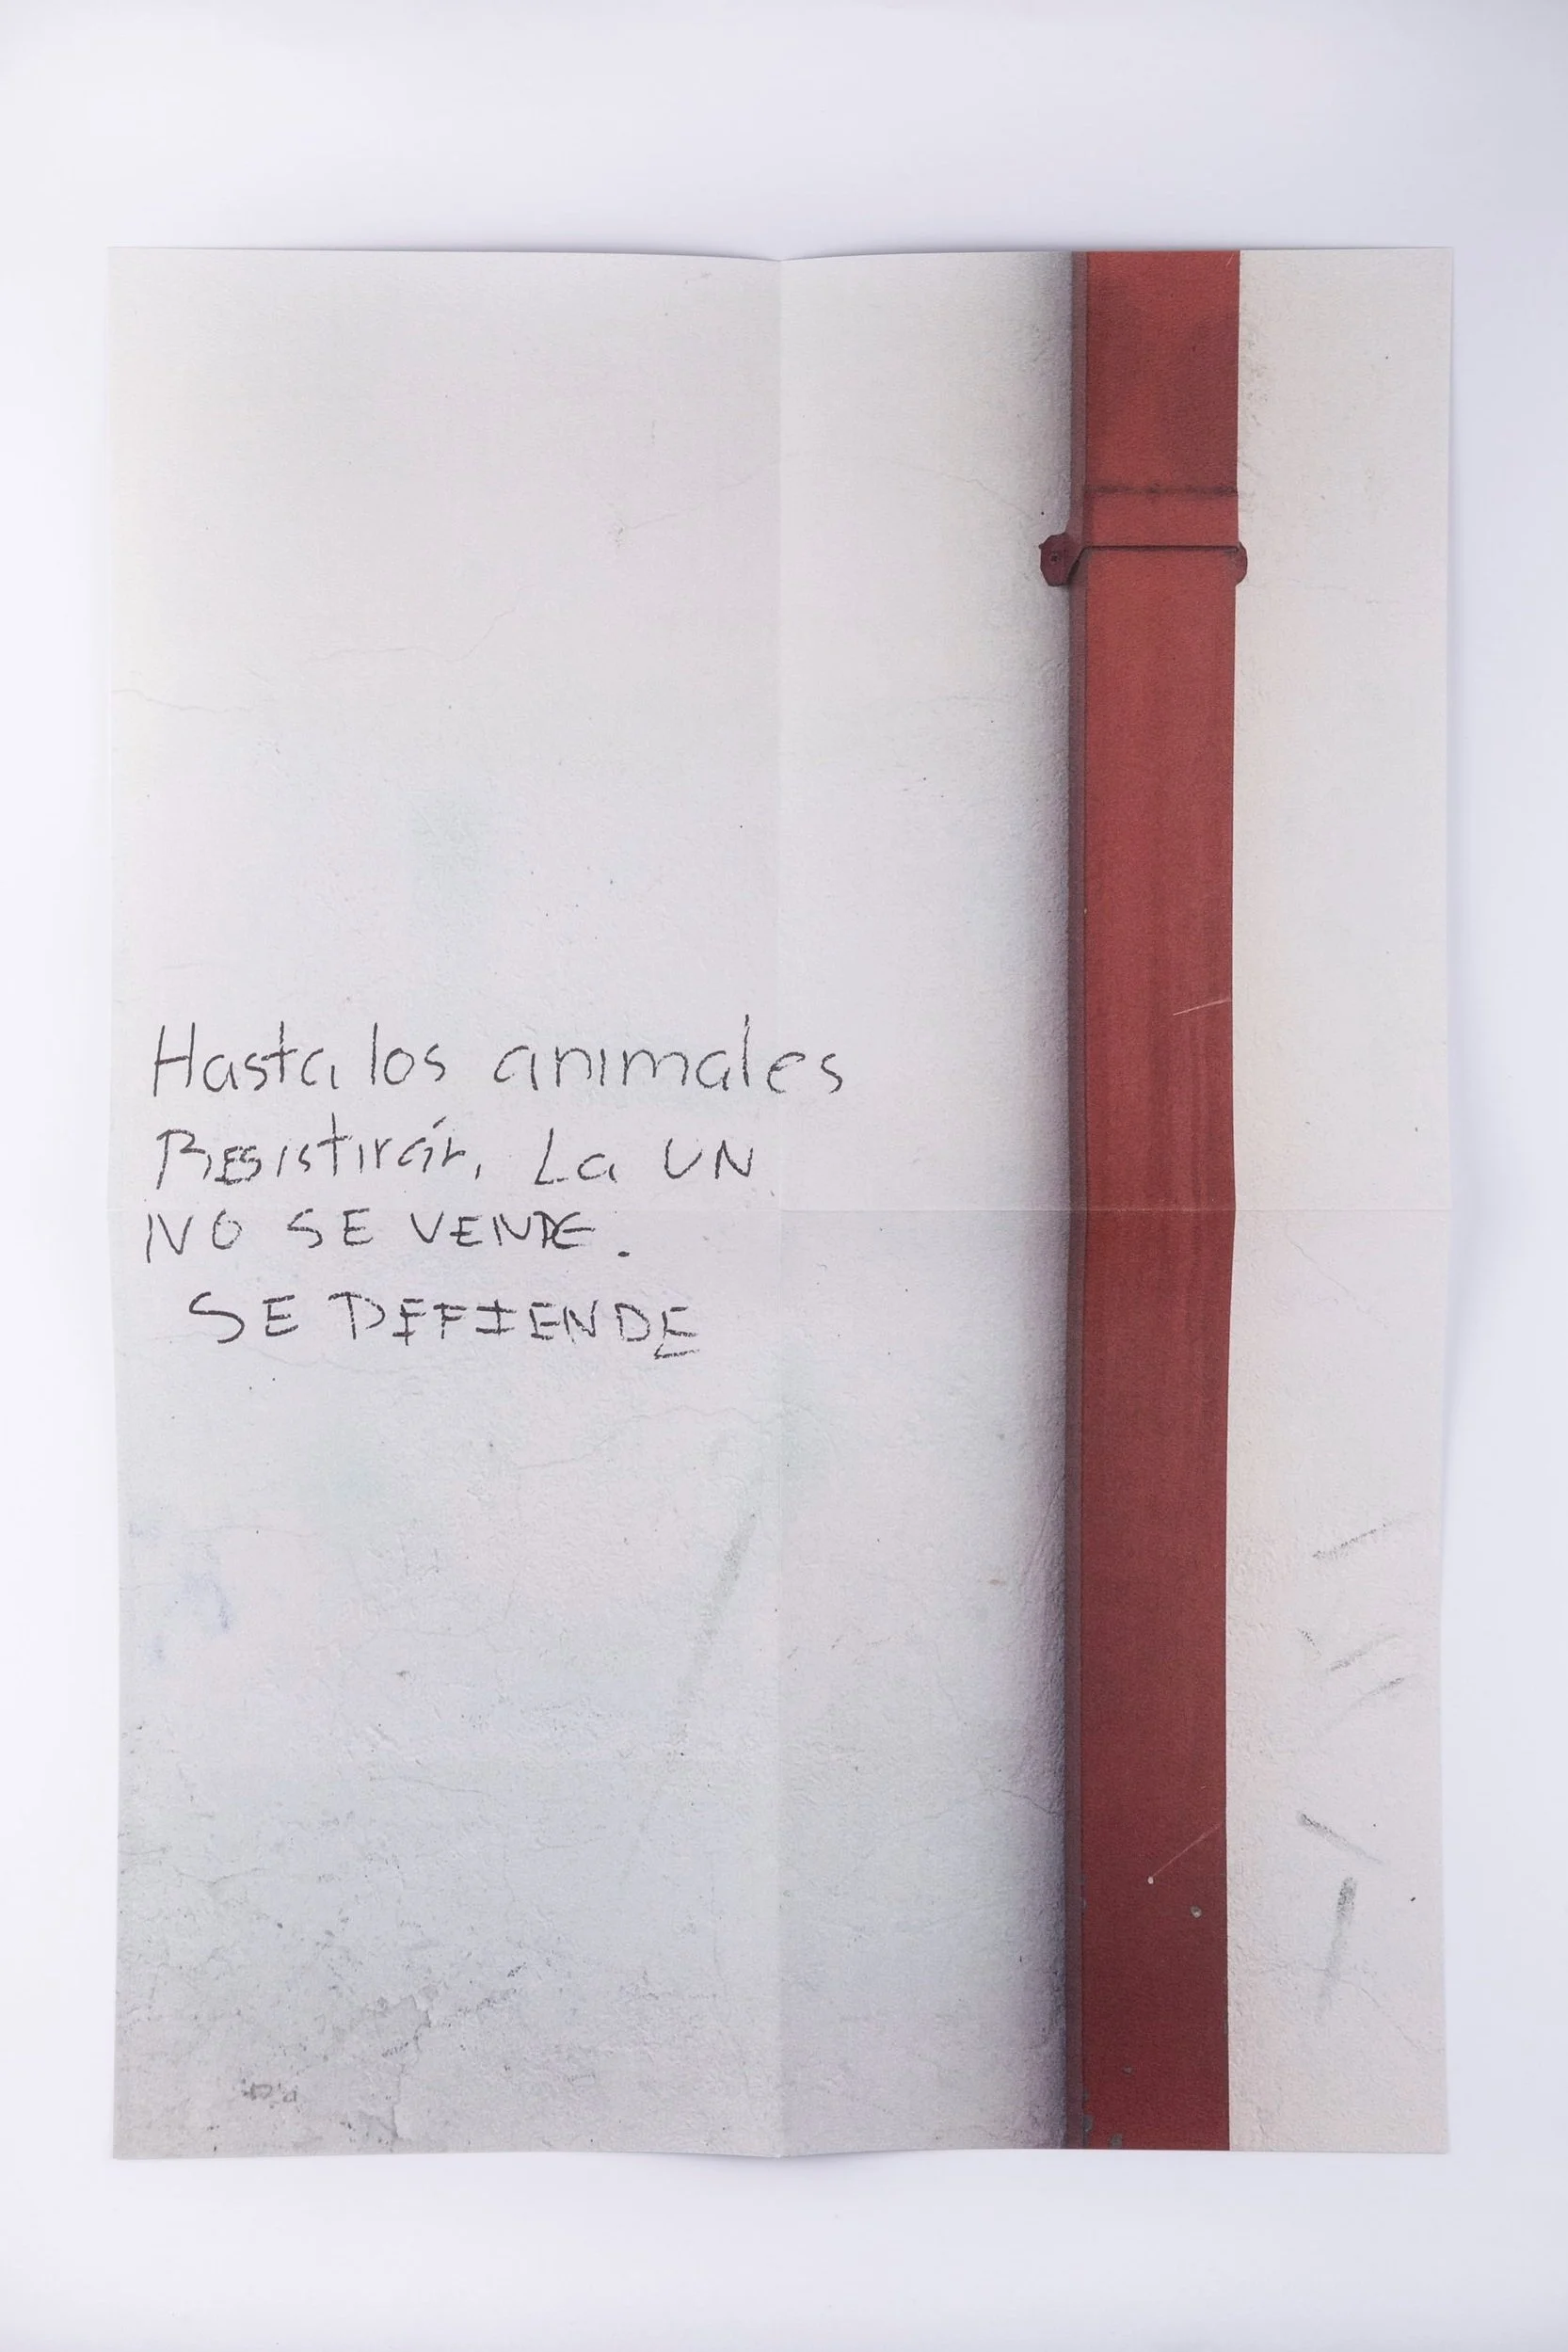 Hasta los animales
Resistirán, La UN
NO SE VENDE.
SE DEFIENDE